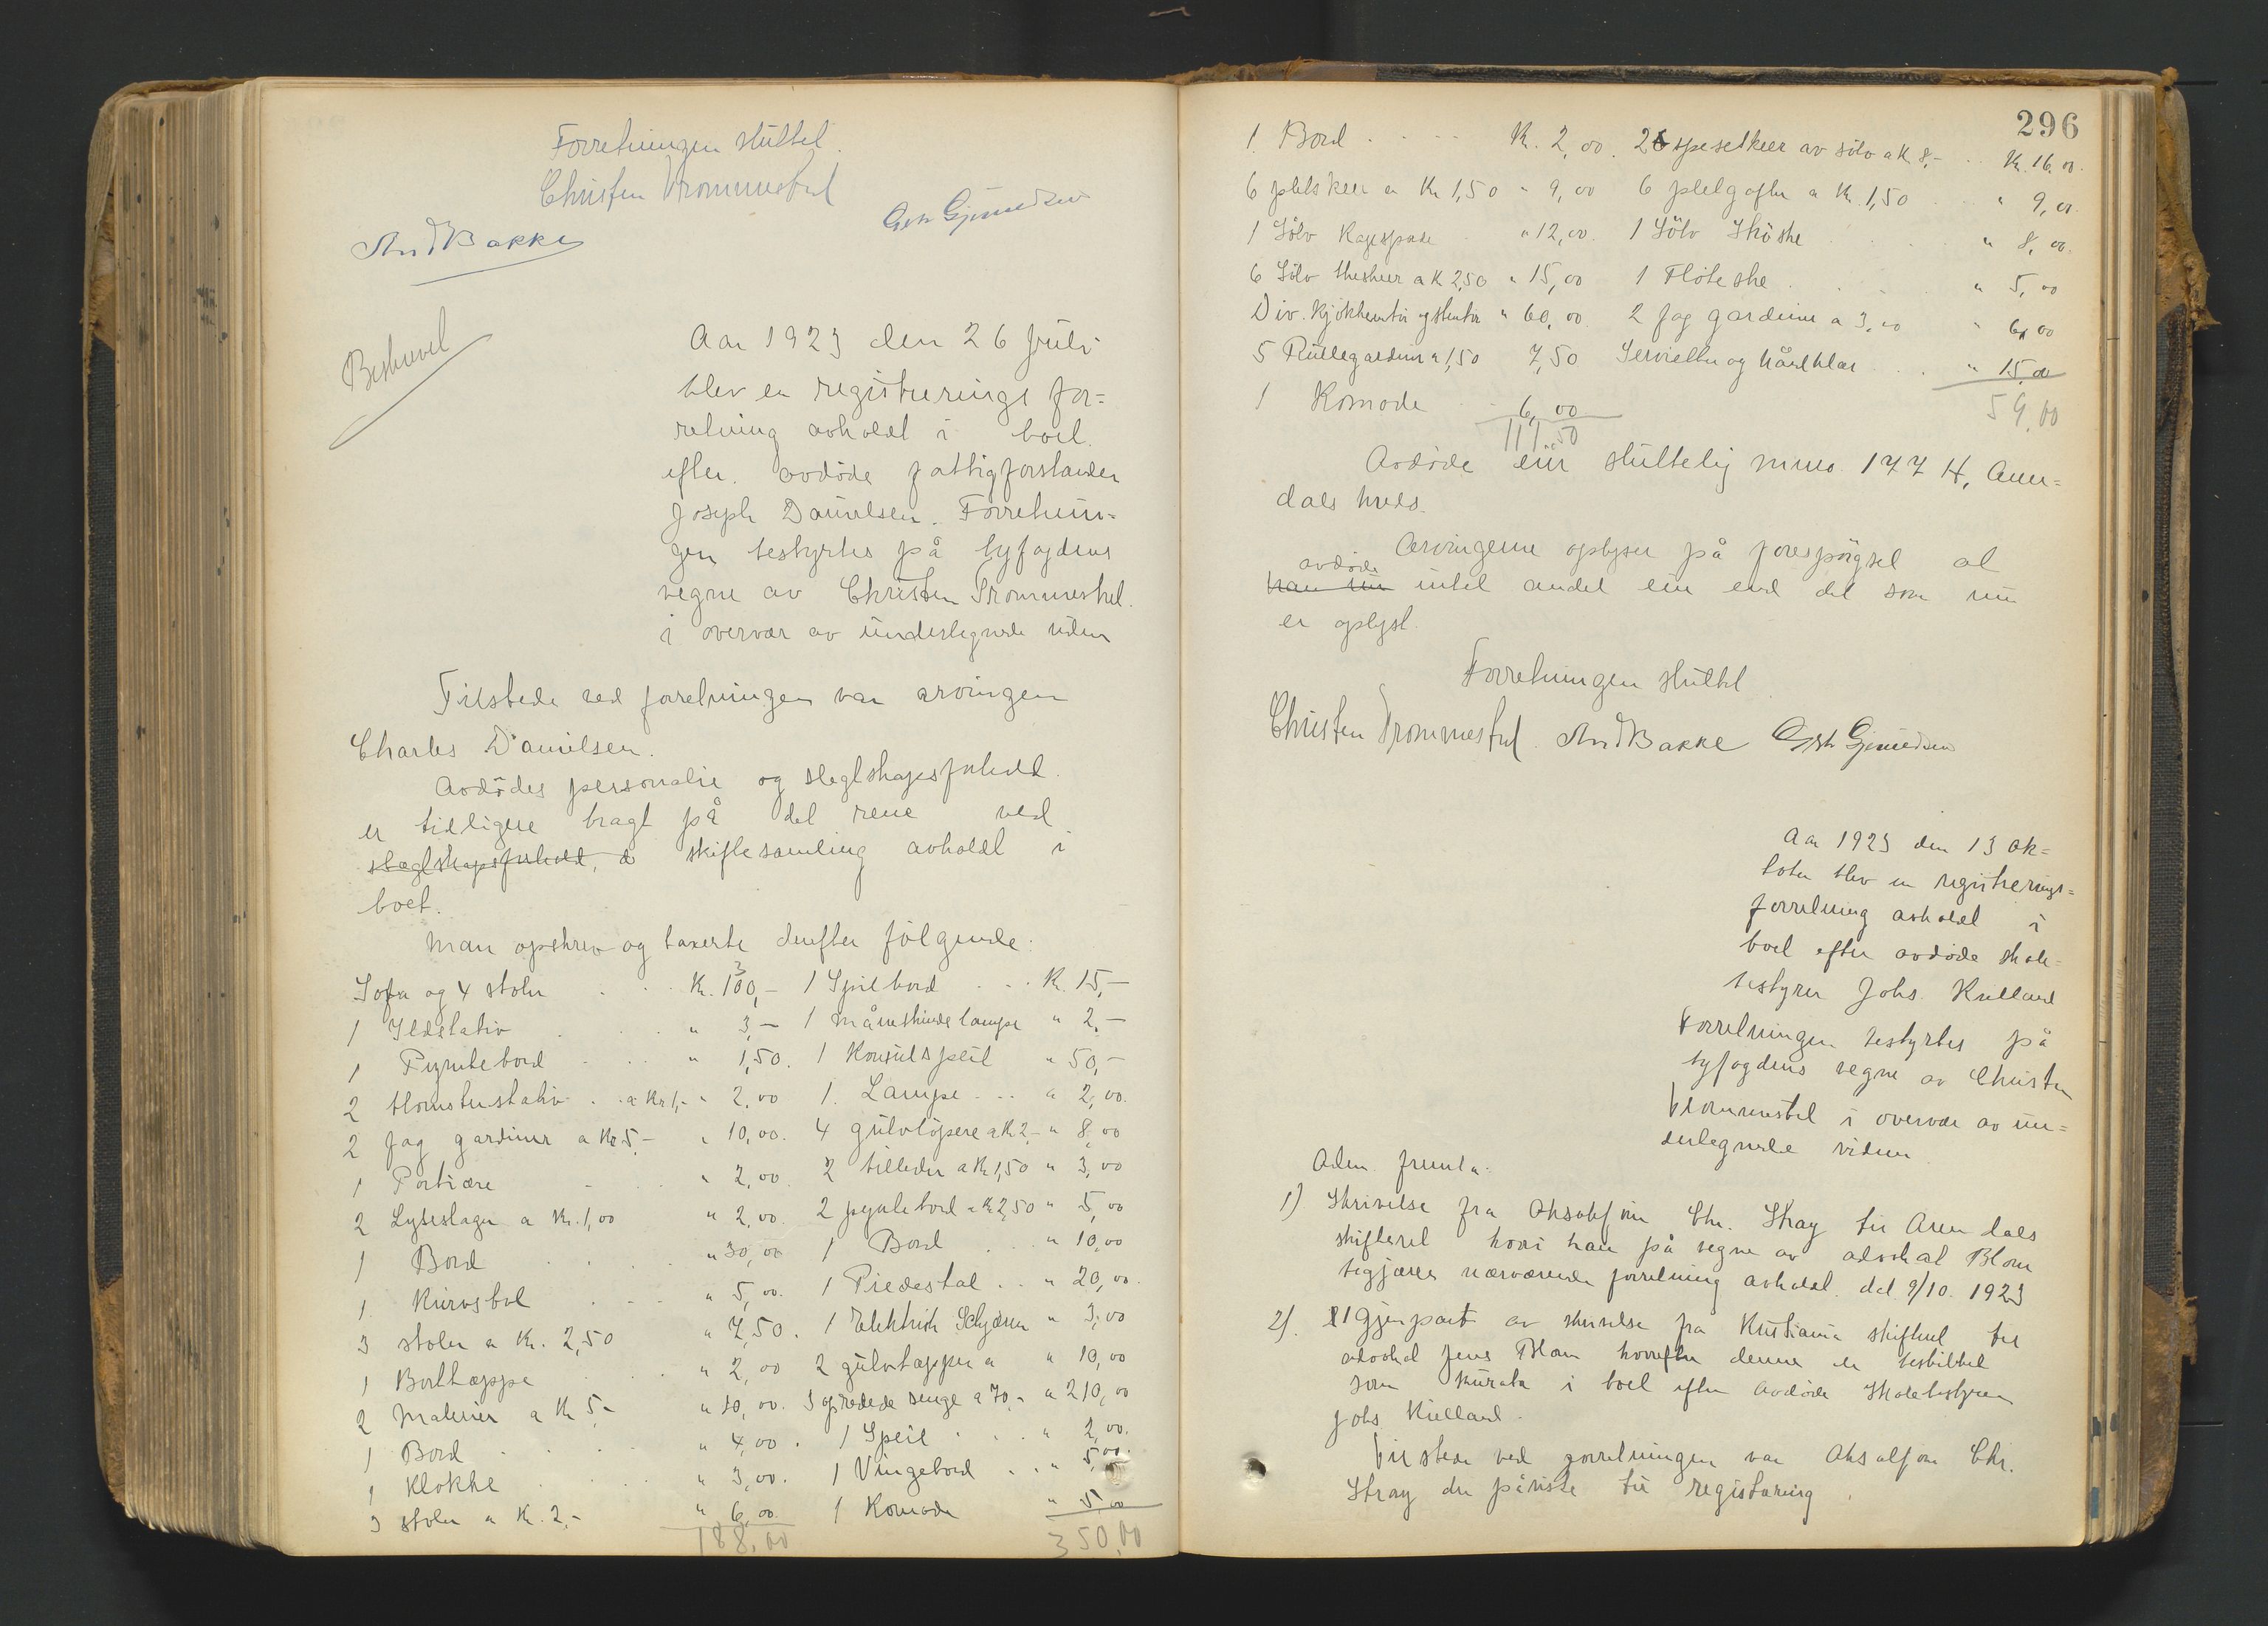 Forretningen sluttet.
Christen Trommestad
And Bakke
Beskrevet
Aar 1923 den 26 juli
blev en registrerings for=
retning avholdt i boet
efter avdøde fattigforstander
Joseph Danielsen. Forretnin=
gen bestyrtes på byfogdens
vegne av Christen Trommestad
i overvær av undertegnede vidner
Tilstede ved forretningen var arvingen
Charles Danielsen.
Avdødes personalie og slegtskapsforhold
er tidligere bragt på det rene ved
slegtskapsforhold, d skiftesamling avholdt i
boet.
Man opskrev og taxerte derefter følgende:
Sofa og 4 stoler . . Kr. 100,- 1 Spilbord . . . Kr. 15,-
1 Ildstativ . . . " 3,- 1 måneskinds lampe " 2,-
1 Pyntebord . . . " 1,50. 1 Konsulspeil " 50,-
2 blomsterstativ . . a Kr 1,- " 2,00 1. Lampe . . . " 2,00.
2 fag gardiner a Kr 5,- " 10,00. 4 gulvløpere a Kr 2,- " 8,00
1 Portiære - . . " 2,00. 2 billeder a Kr 1,50 " 3,00
2 Lysestager a Kr. 1,00 " 2,00. 2 pyntebord a Kr 2,50 " 5,00
1 Bord . . . . " 30,00 1 Bord . . " 10,00
1. Kurvstol . . . " 5,00. 1 Piedestal . . " 20,00.
3 stoler a Kr. 2,50 " 7,50. 1 Elektrisk " 3,00
1 Bordtæppe . . " 2,00 2 gulvtæpper a " 10,00
2 Malerier a Kr 5,- " 10,00. 3 opredede senge a 70,- " 210,00
1 Bord . . . . " 4,00. 1 Speil . . . " 2,00.
1 Klokke . . . " 3,00. 1 Vingebord . . " 5,00.
3 stoler a Kr. 2,- " 6,00. 1 Komode " 5,00
188,00 350,00
296
1. Bord . . . . Kr. 2,00. 2 spiseskeer av sølv a Kr 8,- . . Kr. 16,00.
6 pletskeer a Kr 1,50 " 9,00 6 pletgafler a Kr. 1,50 . . " 9,00.
1 Sølv Kagespade . " 12,00. 1 Sølv . . . " 8,00.
6 Sølv theskeer a Kr 2,50 " 15,00 1 Fløteske . . . " 5,00
Div. Kjøkkentøi og stentøi " 60,00. 2 fag gardiner a 3,00 " 6,00
5 Rullegardiner a 1,50 7,50 Servietter og håndklær . . . " 15,00
1 Komode . . 6,00 59,00
111,50
Avdøde eier sluttelig mnr. 177 H, Aren=
dals hvds.
Arvingerne oplyser på forespørgsel at
avdøde
han nu intet andet eier end det som nu
er oplyst.
Forretningen sluttet
Christen Trommestad And Bakke
Aar 1923 den 13 ok=
tober blev en registrerings=
forretning avholdt i
boet efter avdøde skole-
bestyrer Johs. Kielland
Forretningen bestyrtes på
byfogdens vegne av Christen
Trommestad i overvær av un=
dertegnede vidner
Adm. fremla:
1) Skrivelse fra Chr. Stray til Arendals
skifteret hvori han på vegne av advokat Blom
begjærer nærværende forretning avholdt. dat 9/10. 1923
2). Gjenpart av skrivelse fra Kristiania skifteret til
advokat Jens Blom hvorefter denne er beskikket
som kurator i boet efter avdøde Skolebestyrer
Johs Kielland.
Tilstede ved forretningen var Chr.
Stray der påviste til registrering.